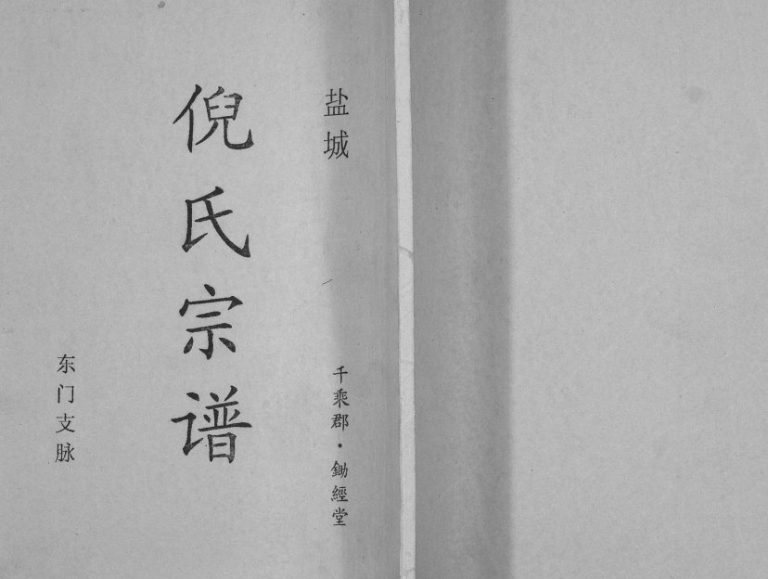 盐城
千乘郡·鋤經堂
倪氏宗谱
东门支脉